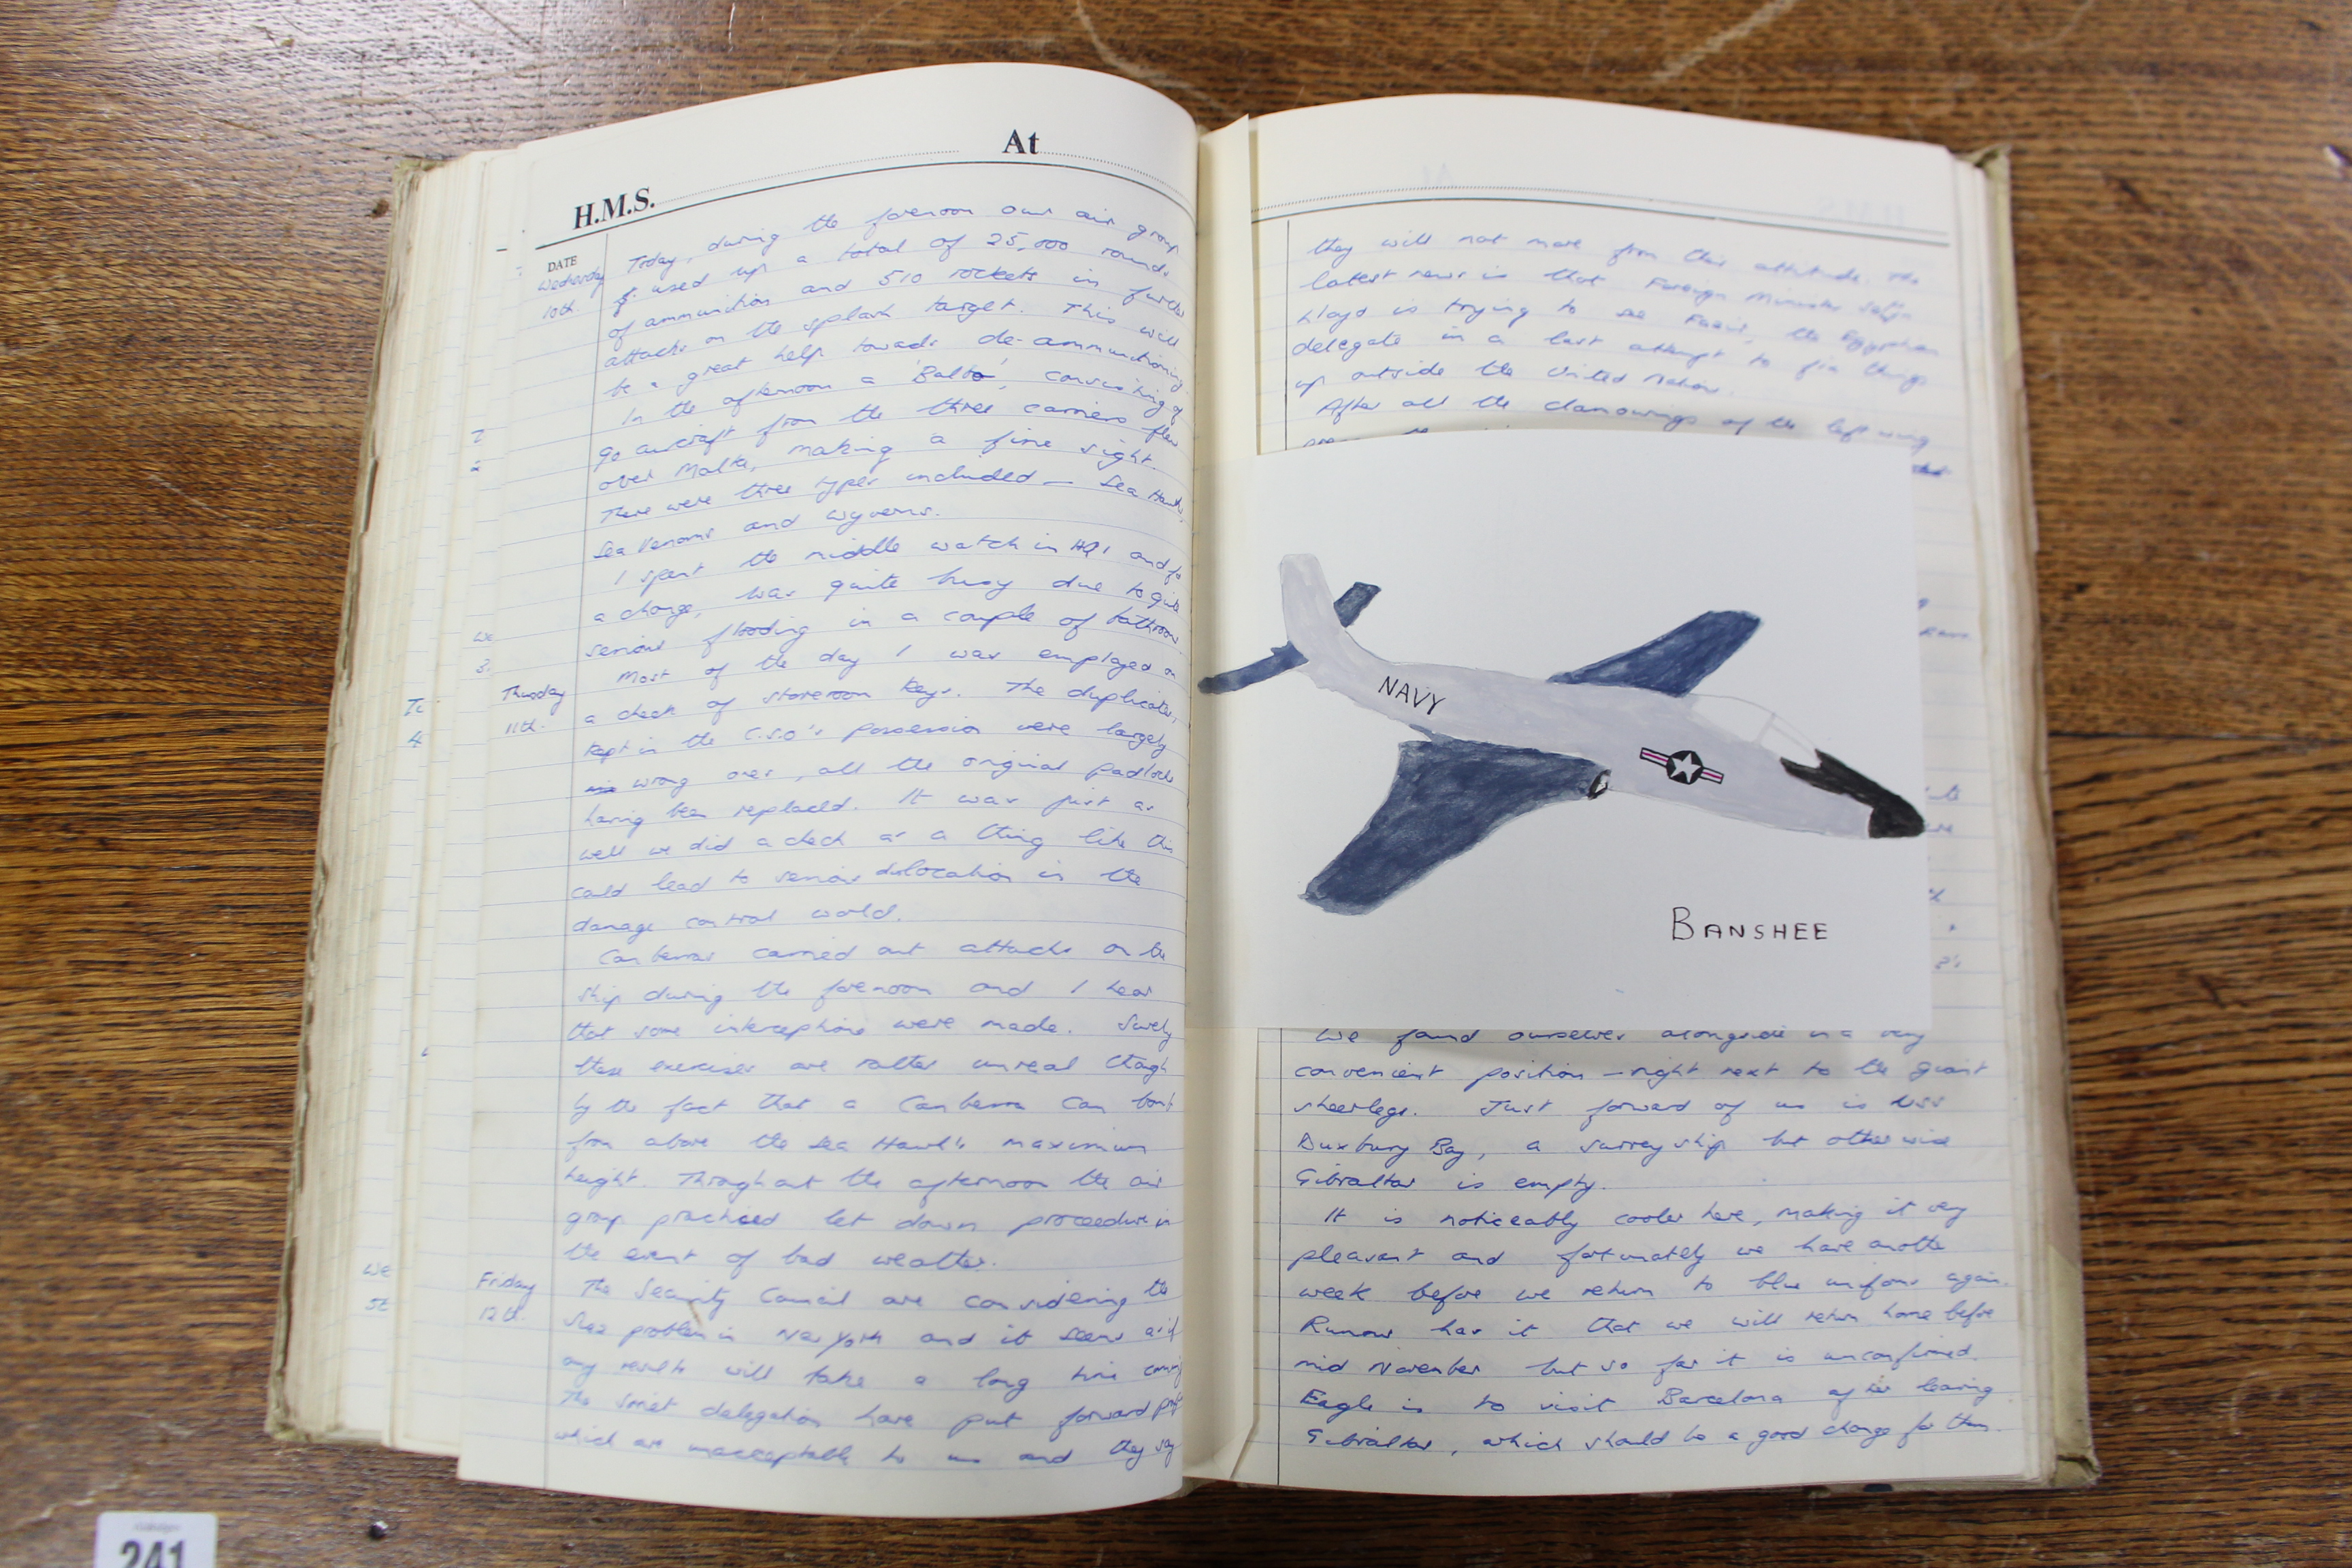 H.M.S. At
DATE
Wednesday
10th.
Today, during the forenoon our air group
used up a total of 25,000 rounds
of ammunition and 510 rockets in further
attacks on the splash target. This will
be a great help towards de-ammunitioning.
In the afternoon a 'Balbo', consisting of
90 aircraft from the three carriers flew
over Malta, making a fine sight.
There were three types included — Sea Hawks,
Sea Venoms and Wyverns.
I spent the middle watch in HQ1 and for
a change, was quite busy due to quite
serious flooding in a couple of bathrooms.
Thursday
11th.
Most of the day I was employed on
a check of storeroom keys. The duplicates,
kept in the C.S.O's possession were largely
wrong ones, all the original padlocks
having been replaced. It was just as
well we did a check as a thing like this
could lead to serious dislocation in the
damage control world.
Canberras carried out attacks on the
ship during the forenoon and I hear
that some interceptions were made. Surely
these exercises are rather unreal though
by the fact that a Canberra can bomb
from above the Sea Hawk's maximum
height. Throughout the afternoon the air
group practiced let down proceedure in
the event of bad weather.
Friday
12th.
The Security Council are considering the
Suez problem in New York and it seems as if
any results will take a long time coming
The Soviet delegation have put forward
which are unacceptable to us and they say
they will not move from this attitude. The
latest news is that Foreign Minister Selwyn
Lloyd is trying to see Fawzi, the Egyptian
delegate in a last attempt to fix things
up outside the United Nations.
After all the clamourings of the left wing
NAVY
BANSHEE
We found ourselves alongside in a very
convenient position — right next to the giant
sheerlegs. Just forward of us is USS
Duxbury Bay, a survey ship but otherwise
Gibraltar is empty.
It is noticeably cooler here, making it very
pleasant and fortunately we have another
week before we return to blue uniforms again.
Rumour has it that we will return home before
mid November but so far it is unconfirmed.
Eagle is to visit Barcelona after leaving
Gibraltar, which should be a good change for them.
241